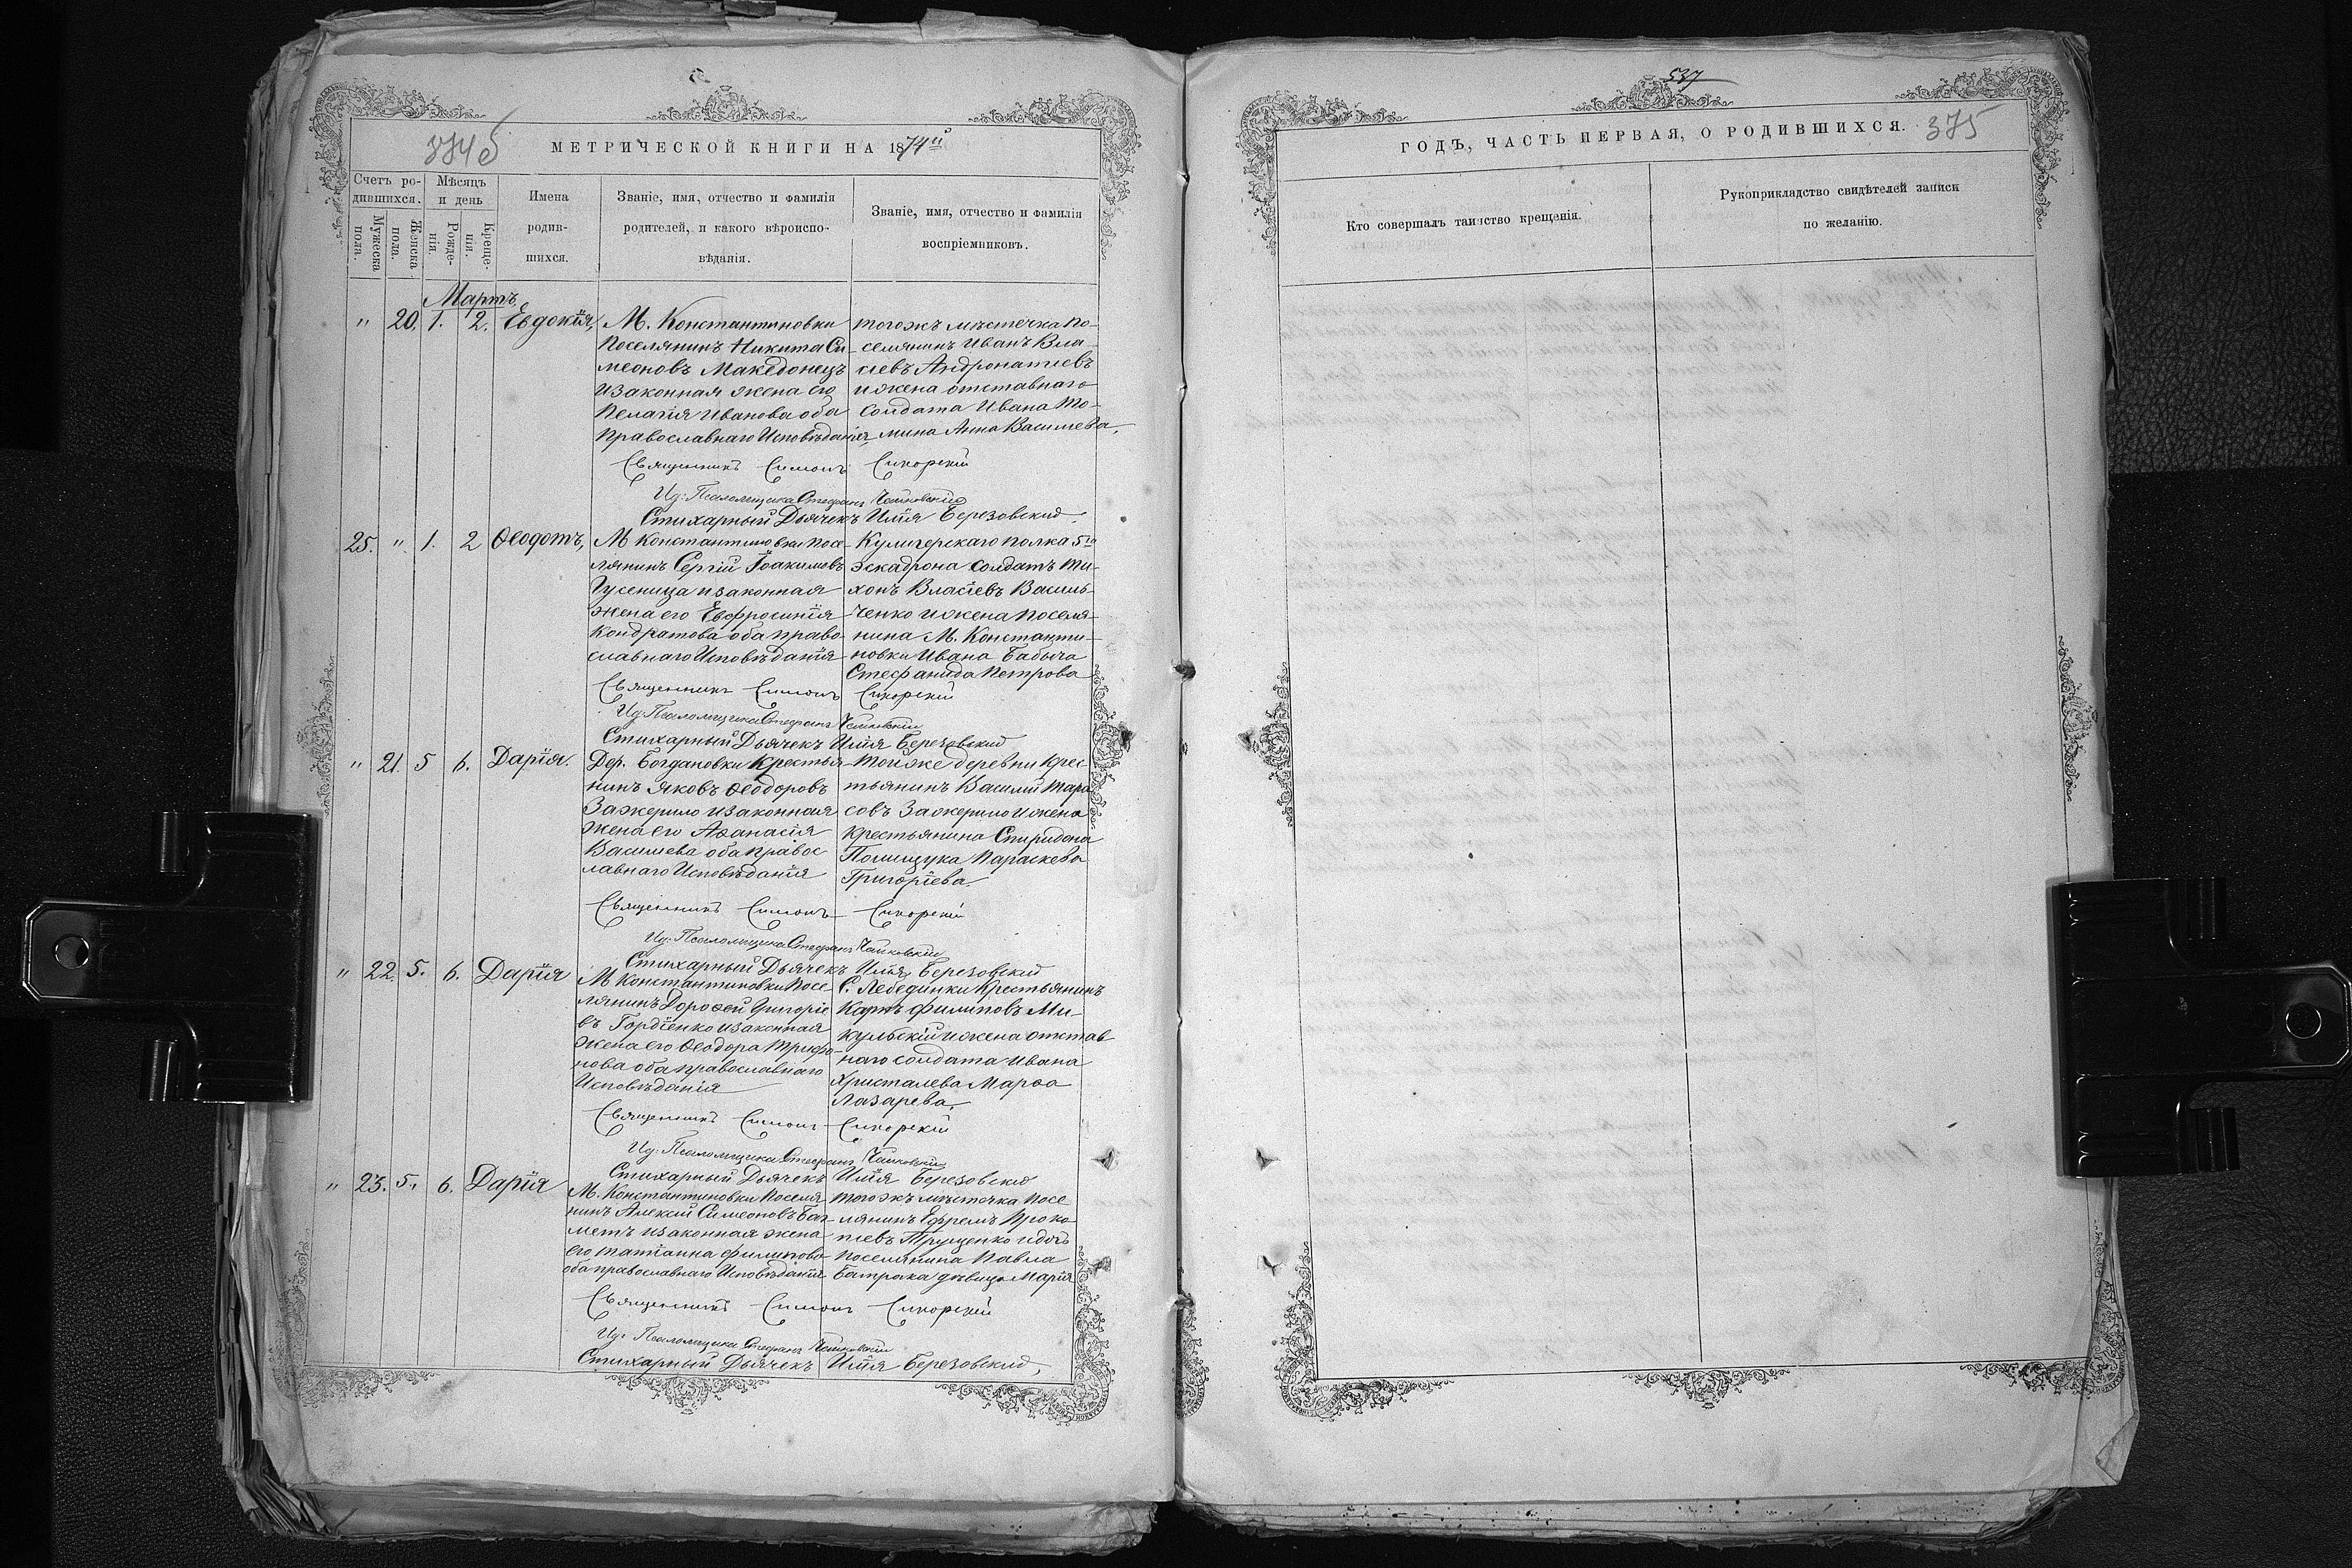 374 б
МЕТРИЧЕСКОЙ КНИГИ НА 1874й
Счетъ родившихся.
Мѣсяцъ и день
Имена родившихся.
Званіе, имя, отчество и фамилія родителей, и какого вѣроисповѣданія.
Званіе, имя, отчество и фамилія воспріемниковъ.
Мужеска пола.
Женска пола.
Рожденія.
Крещенія.
Мартъ
" 20. 1. 2. Евдокія,
М. Константиновки
Поселянинъ Никита Си-
меоновъ Македонецъ
и законная жена его
Пелагія Иванова оба
православнаго Исповѣданія,
тогожъ мѣстечка по-
селянинъ Иванъ Вла-
сіевъ Андронатіевъ
и жена отставнаго
Солдата Ивана То-
мина Анна Василева.
Священникъ Симонъ Сикорскій
Ид: Псаломщика Стефанъ Чайковскій
Стихарный Дьячекъ Илія Березовскій.
25. " 1. 2 Ѳеодотъ,
М Константиновки посе-
лянинъ Сергій Іоакимовъ
Гусеница и законная
жена его Евфросинія
Кондратова оба право-
славнаго Исповѣданія
эскадрона Солдатъ Ти-
хонъ Власіевъ Василь-
ченко и жена поселя-
нина М. Константи-
новки Ивана Бабыча
Стефанида Петрова
Священникъ Симонъ Сикорскій
Ид: Псаломщика Стефанъ Чайковскій
Стихарный Дьячекъ Илія Березовскій
" 21. 5 6. Дарія.
Дер. Богдановки Крестья-
нинъ Яковъ Ѳеодоровъ
Зажерило и законная
жена его Аѳанасія
Василева оба правос
лавнаго Исповѣданія
тойже деревни крес-
тьянинъ Василій Тара
совъ Зажерило и жена
крестьянина Спиридона
Полищука Параскева
Григоріева.
Священникъ Симонъ Сикорскій
Ид: Псаломщика Стефанъ Чайковскій
Стихарный Дьячекъ Илія Березовскій
" 22. 5. 6. Дарія
М Константиновки Посе-
лянинъ Дороѳей Григоріе
въ Гордіенко и законная
жена его Ѳеодора Трифо-
нова оба православнаго
Исповѣданія
С. Лебединки Крестьянинъ
Карпъ Филиповъ Ми-
кульскій и жена отстав
наго солдата Ивана
Христалева Марѳа
Лазарева.
Священникъ Симонъ Сикорскій
Ид: Псаломщика Стефанъ Чайковскій
Стихарный Дьячекъ Илія Березовскій
" 23. 5. 6. Дарія
М. Константиновки Поселя
нинъ Алексій Симеоновъ Баг-
метъ и законная жена
его Татіанна Филипова
оба православнаго Исповѣданія
тогожъ мѣстечка посе
лянинъ Ефремъ Проко-
піевъ Трущенко и дочь
поселянина Павла
Батрака дѣвица Марія
Священникъ Симонъ Сикорскій
Ид: Псаломщика Стефанъ Чайковскій
Стихарный Дьячекъ Илія Березовскій,
537
ГОДЪ, ЧАСТЬ ПЕРВАЯ, О РОДИВШИХСЯ.
375
Кто совершалъ таинство крещенія.
Рукоприкладство свидѣтелей записи
по желанію.